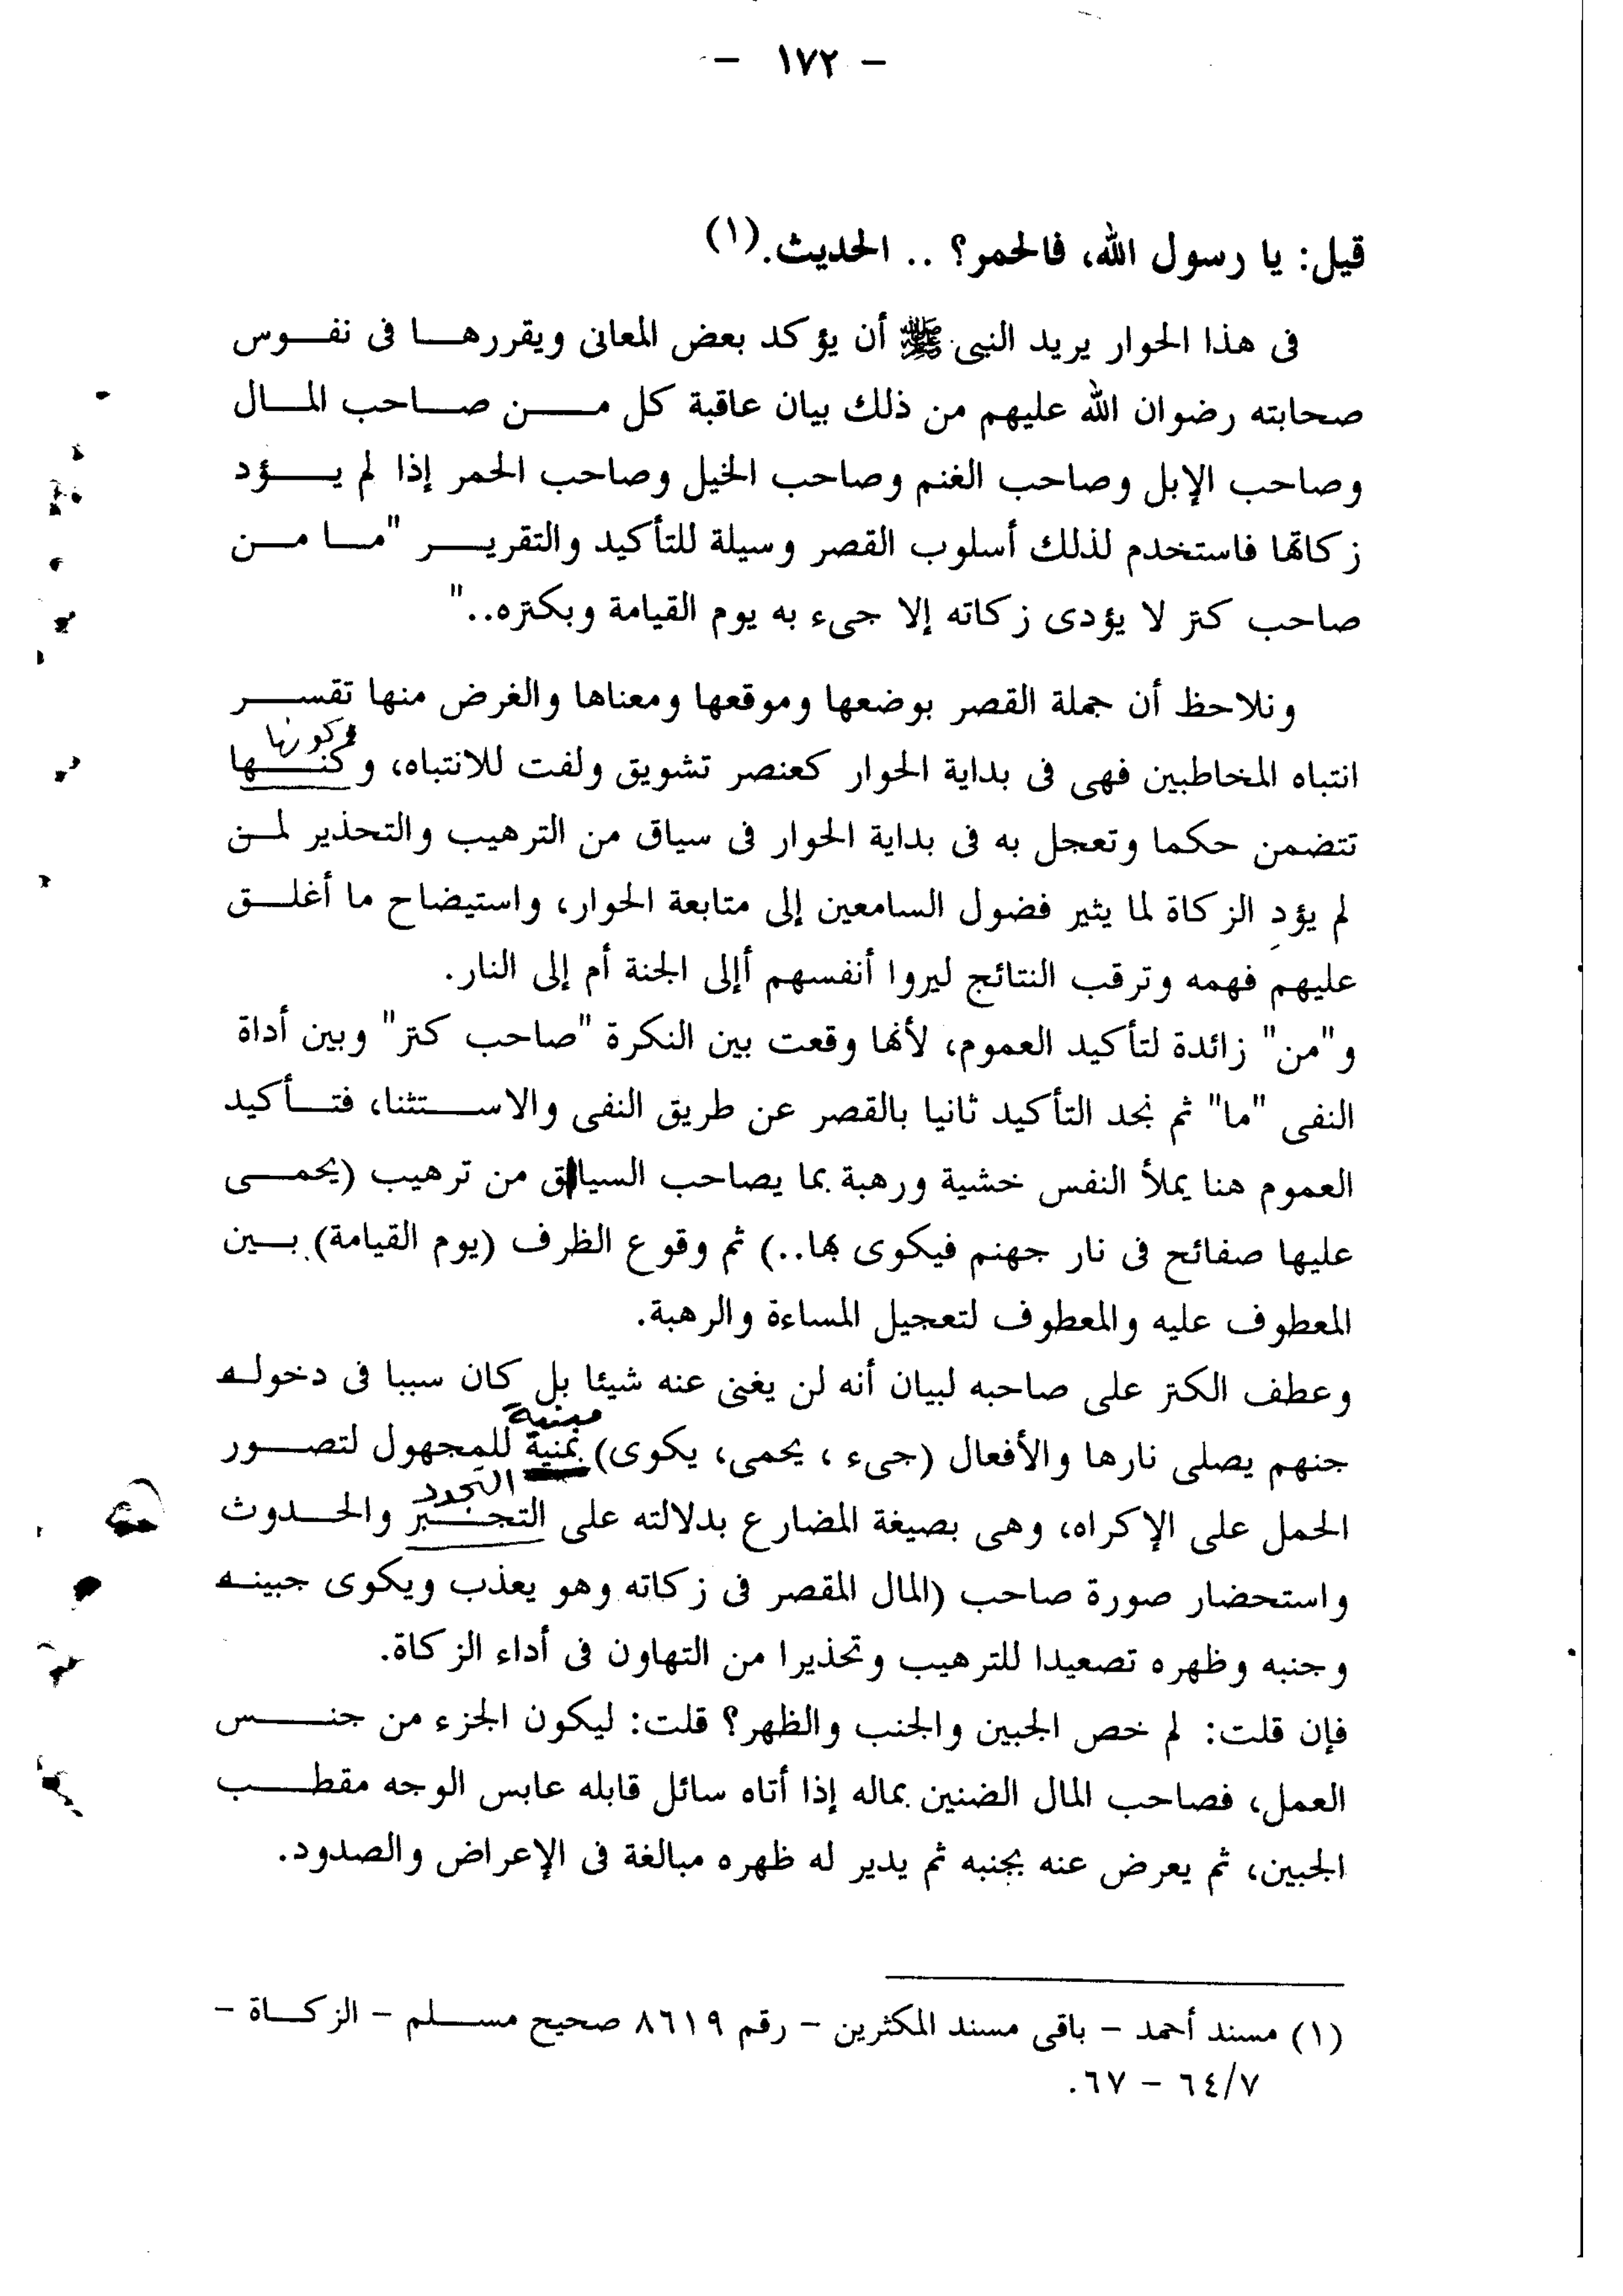 - ١٧٢ -
قيل: يا رسول الله، فالحمر؟ .. الحديث.(١)
فى هذا الحوار يريد النبى ﷺ أن يؤكد بعض المعانى ويقررهـا فى نفـوس
صحابته رضوان الله عليهم من ذلك بيان عاقبة كل مـن صـاحب المـال
وصاحب الإبل وصاحب الغنم وصاحب الخيل وصاحب الحمر إذا لم يـؤد
زكاتها فاستخدم لذلك أسلوب القصر وسيلة للتأكيد والتقريـر "مـا مـن
صاحب كنز لا يؤدى زكاته إلا جىء به يوم القيامة وبكنزه.."
ونلاحظ أن جملة القصر بوضعها وموقعها ومعناها والغرض منها تقسـر
وكونها
انتباه المخاطبين فهى فى بداية الحوار كعنصر تشويق ولفت للانتباه، وكنـها
تتضمن حكما وتعجل به فى بداية الحوار فى سياق من الترهيب والتحذير لمـن
لم يؤدِ الزكاة لما يثير فضول السامعين إلى متابعة الحوار، واستيضاح ما أغلـق
عليهم فهمه وترقب النتائج ليروا أنفسهم أإلى الجنة أم إلى النار.
و"من" زائدة لتأكيد العموم، لأنها وقعت بين النكرة "صاحب كنز" وبين أداة
النفى "ما" ثم نجد التأكيد ثانيا بالقصر عن طريق النفى والاسـتثنا، فتـأكيد
العموم هنا يملأ النفس خشية ورهبة بما يصاحب السياق من ترهيب (يحمـى
عليها صفائح فى نار جهنم فيكوى بها..) ثم وقوع الظرف (يوم القيامة) بـين
المعطوف عليه والمعطوف لتعجيل المساءة والرهبة.
وعطف الكنز على صاحبه لبيان أنه لن يغنى عنه شيئا بل كان سببا فى دخولـه
مبنية
جنهم يصلى نارها والأفعال (جىء ، يحمى، يكوى) بمنية للمجهول لتصـور
التجدد
الحمل على الإكراه، وهى بصيغة المضارع بدلالته على التجـبر والحـدوث
واستحضار صورة صاحب (المال المقصر فى زكاته وهو يعذب ويكوى جبينـه
وجنبه وظهره تصعيدا للترهيب وتحذيرا من التهاون فى أداء الزكاة.
فإن قلت: لم خص الجبين والجنب والظهر؟ قلت: ليكون الجزء من جنـس
العمل، فصاحب المال الضنين بماله إذا أتاه سائل قابله عابس الوجه مقطـب
الجبين، ثم يعرض عنه بجنبه ثم يدير له ظهره مبالغة فى الإعراض والصدود.
(١) مسند أحمد - باقى مسند المكثرين - رقم ٨٦١٩ صحيح مسـلم - الزكـاة -
٦٤/٧ - ٦٧.